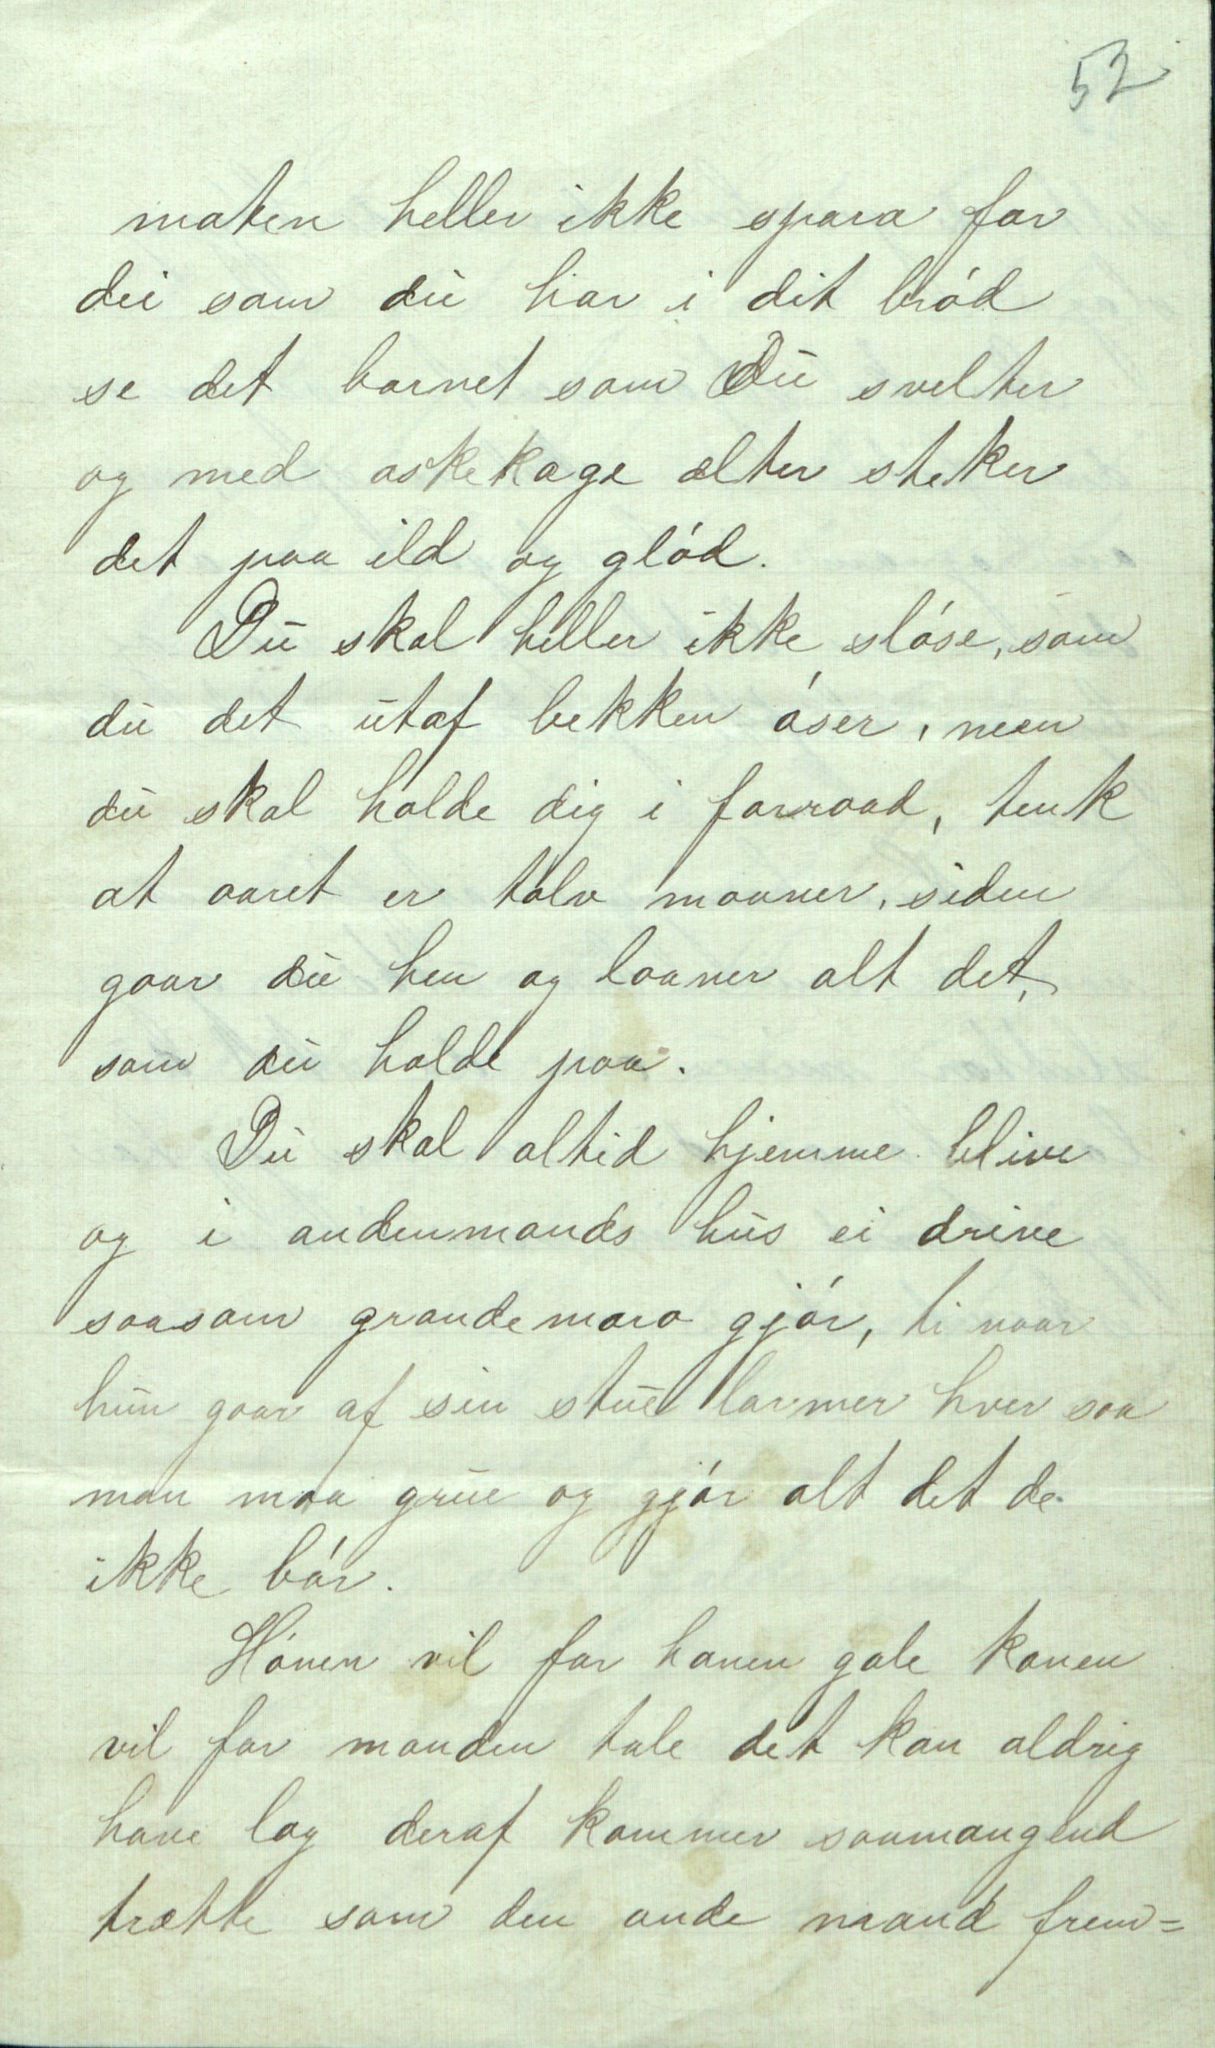 52
maten heller ikke spara for
dei som du har i dit brød
se det barnet som Du svelter
og med askekage ælter steker
det paa ild og glød.
Du skal heller ikke sløse, som
du det utaf bekken øser, men
du skal holde dig i forraad, tenk
at aaret er tolv maaner, siden
gaar du hen og laaner alt det,
som du holde paa.
Du skal altid hjemme blive
og i andenmands hus ei drive
saasom grandemora gjør, ti naar
hun gaar af sin stue larmer hver saa
man maa grue og gjør alt det de
ikke bør.
Hønen vil for hanen gale konen
vil for manden tale det kan aldrig
have lag deraf kommer saamangend
trætte som den onde mand frem=